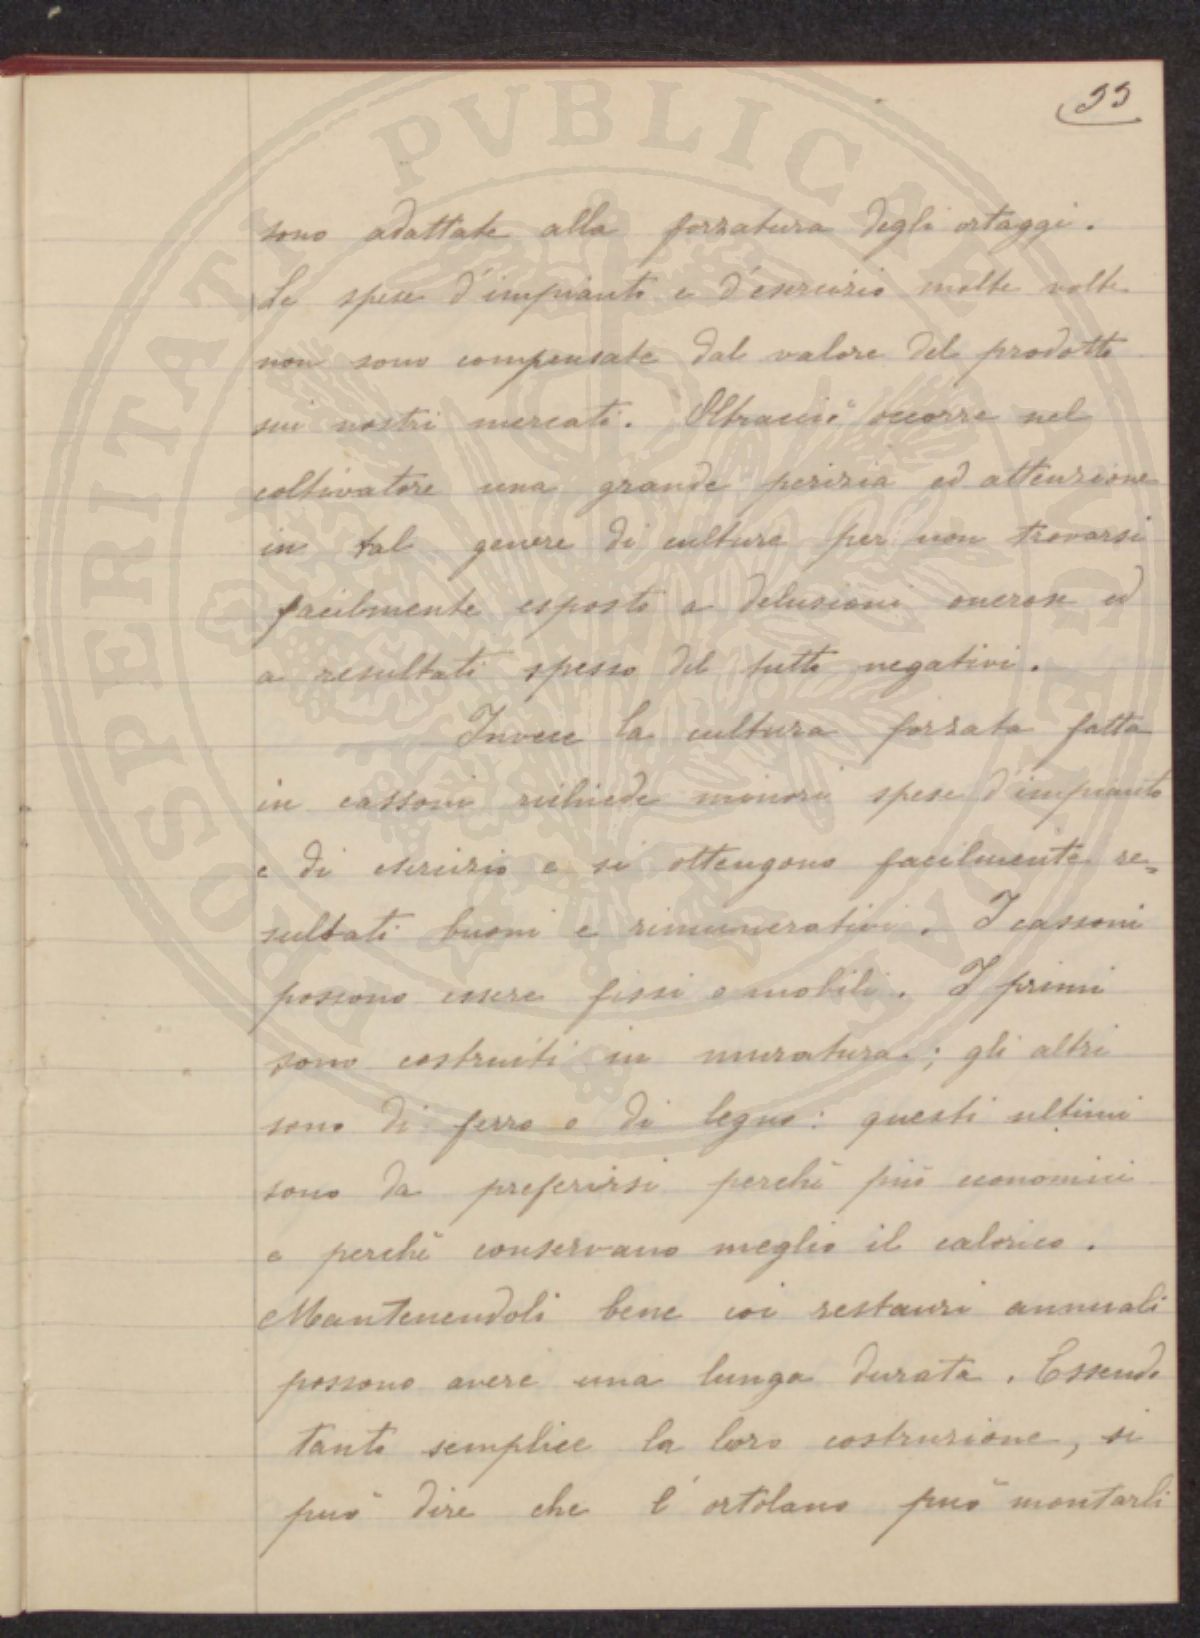 33
sono adattate alla forzatura degli ortaggi.
Le spese d'impianto e d'esercizio molte volte
non sono compensate dal valore del prodotto
sui nostri mercati. Oltracciò occorre nel
coltivatore una grande perizia ed attenzione
in tal genere di culture per non trovarsi
facilmente esposto a delusioni onerose ed
a resultati spesso del tutto negativi.
Invece la cultura forzata fatta
in cassoni richiede minori spese d'impianto
e di esercizio e si ottengono facilmente re=
sultati buoni e rimunerativi. I cassoni
possono essere fissi o mobili. I primi
sono costruiti in muratura; gli altri
sono di ferro o di legno: questi ultimi
sono da preferirsi perchè più economici
e perchè conservano meglio il calorico.
Mantenendoli bene coi restauri annuali
possono avere una lunga durata. Essendo
tanto semplice la loro costruzione, si
può dire che l'ortolano può montarli
PROSPERITATI PVBLICAE AVGENDAE